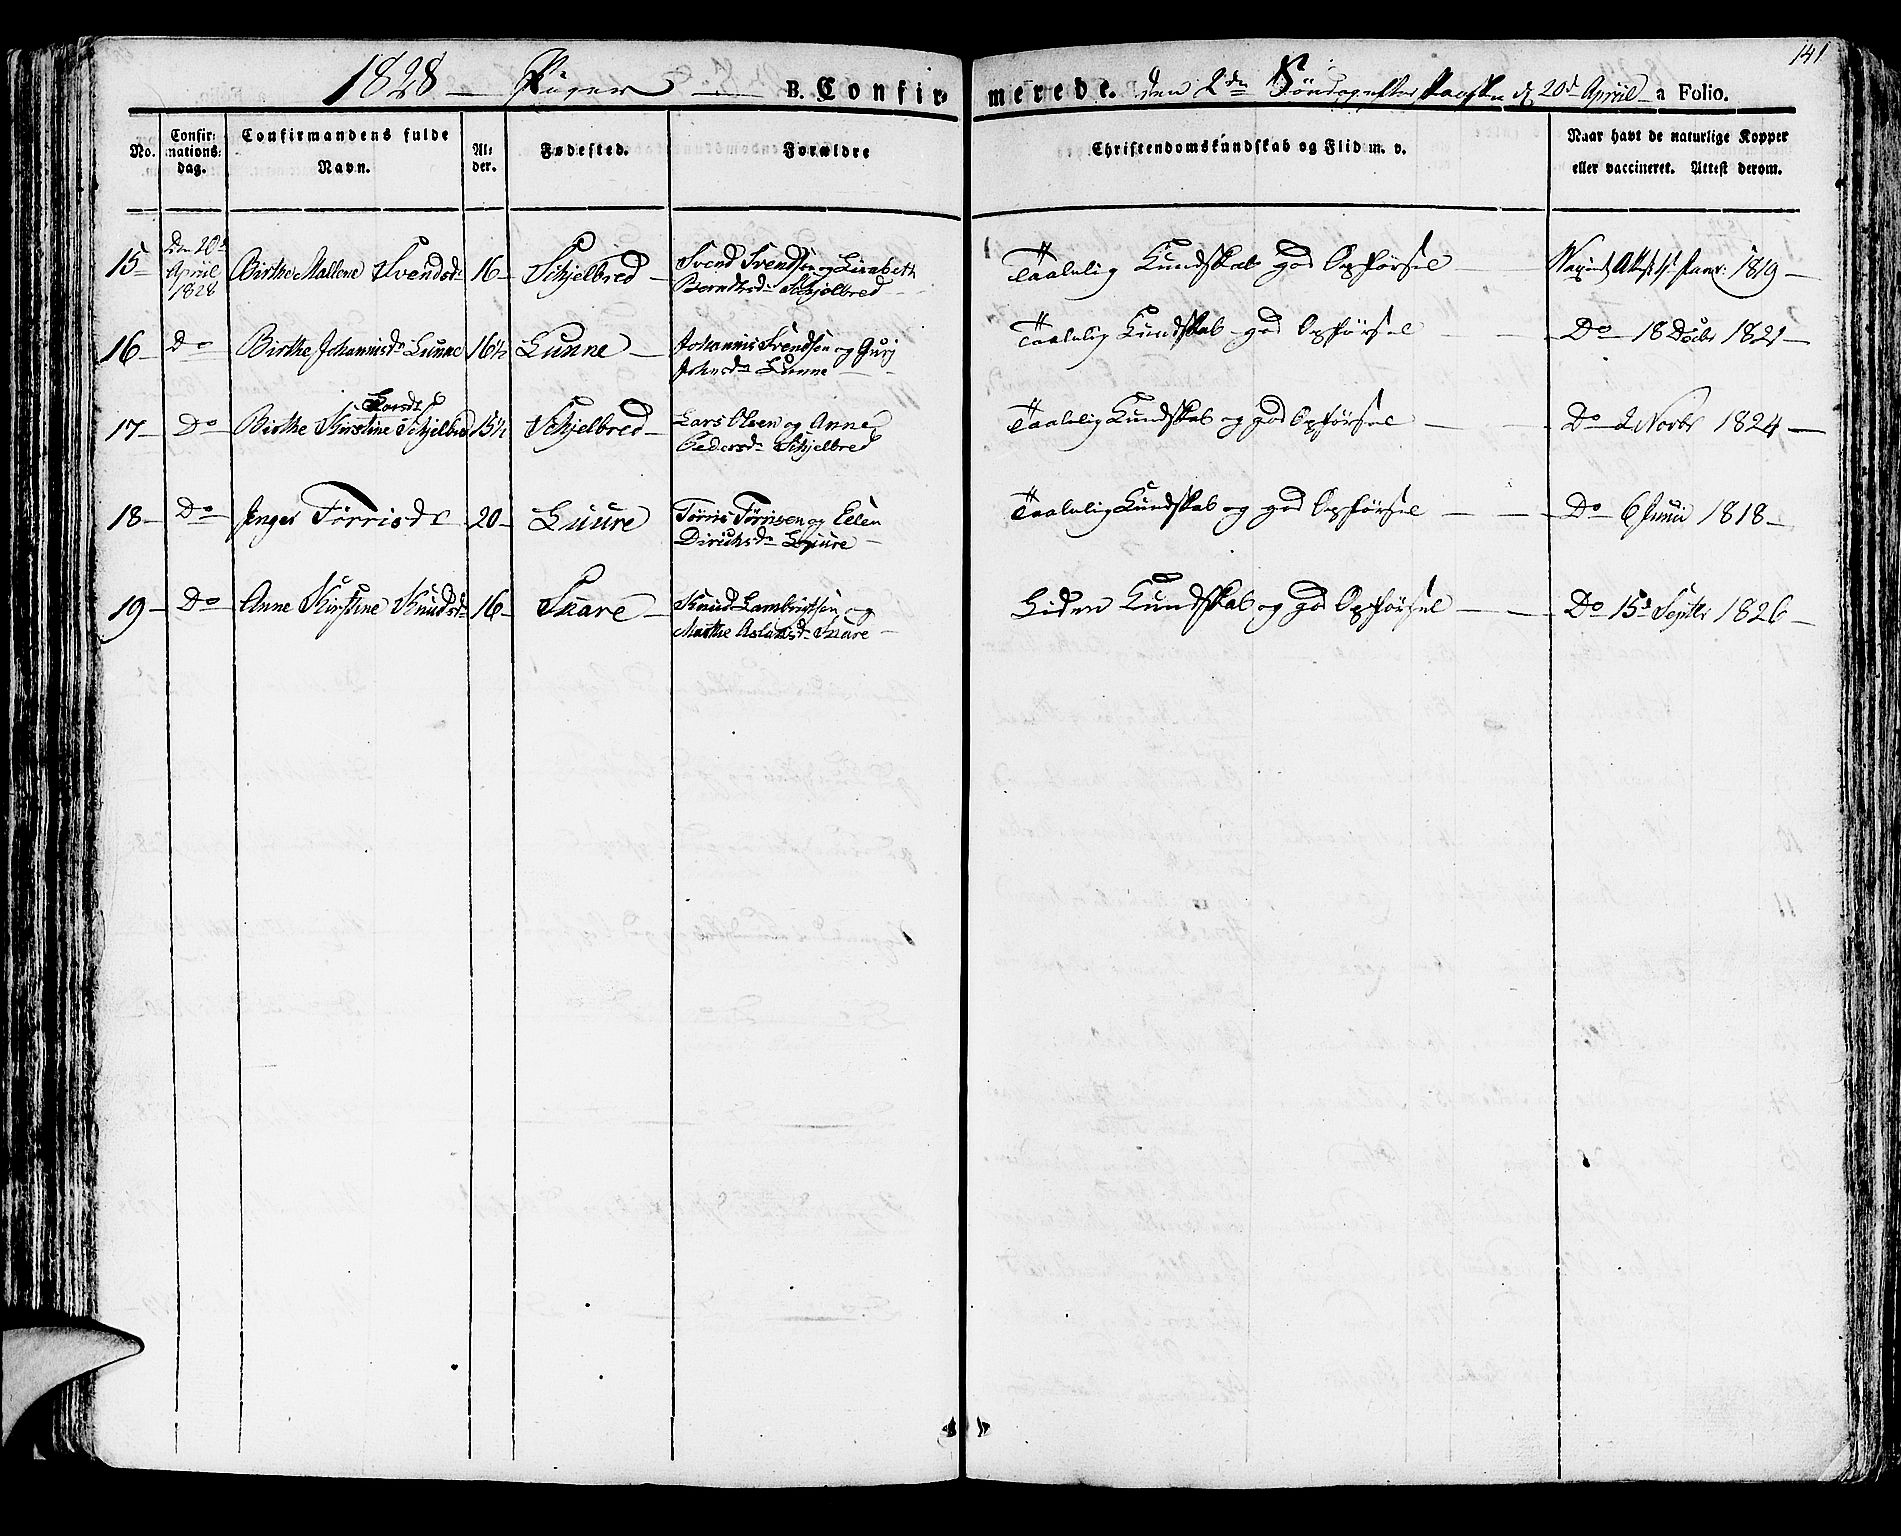 141
1828 Piger B. Confirmerede. den 2den Søndag efter Paaske d 20d April a Folio.
No. Confirmationsdag. Confirmandens fulde Navn. Alder. Fødested. Forældre Christendomskundskab og Flid m. v. Naar havt de naturlige Kopper eller vaccineret. Attest derom.
15 Den 20d April 1828 Birthe Mallene Svendsd. 16 Schjelbred Svend Svendsen og Lisabeth Berndtsd. Schjelbred Taalelig Kundskab god Opførsel Attest 1819
16 Do Birthe Johannisd. Lunne 16½ Lunne Johannis Svendsen og Gurj Johnsd. Lunne Taalelig Kundskab god Opførsel Do 18 Decbr 1821
17 Do Birthe Kirstine Larsdr Schjelbred 15½ Schjelbred Lars Olsen og Anne Pedersd. Schjelbred Taalelig Kundskab og god Opførsel Do 2 Novbr 1824
18 Do Inger Tørrisdr 20 Luure Tørris Tørrisen og Ellen Dirichsd. Luure Taalelig Kundskab og god Opførsel Do 6 Junii 1818
19 Do Anne Kirstine Knudsd. 16 Snare Knud Lambrigtsen og Marthe Aslaksd. Snare Liden Kundskab og god Opførsel Do 15d Septbr 1826